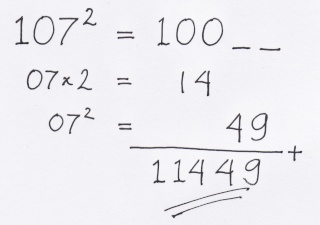 107² = 100 _ _
07×2 = 14
07² = 49
+
11449